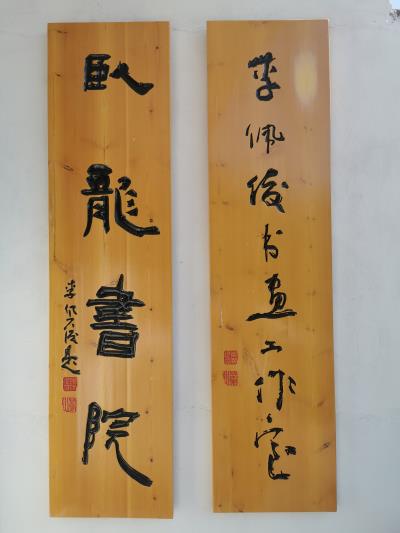 李佩俊书画工作室
臥龍書院
李佩俊题